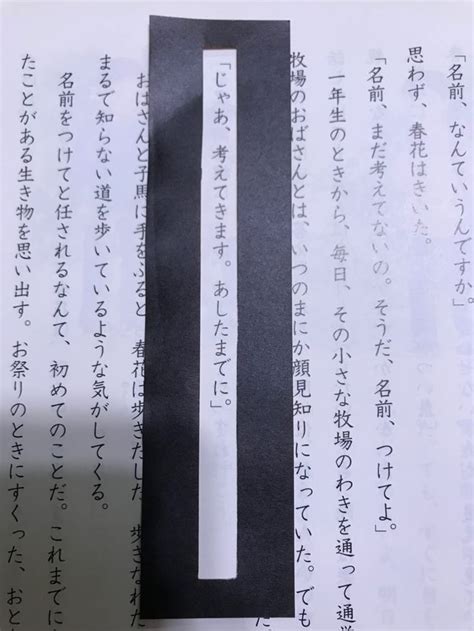 「名前、なんていうんですか」
思わず、春花はきいた。
「名前、まだ考えてないの。そうだ、名前、つけてよ。」
一年生のときから、毎日、その小さな牧場のわきを通って通学
牧場のおばさんとは、いつのまにか顔見知りになっていた。でも
「じゃあ、考えてきます。あしたまでに。」
おばさんと子馬に手をふると、春花は歩きだした。歩きなれた
まるで知らない道を歩いているような気がしてくる。
名前をつけてと任されるなんて、初めてのことだ。これまでに
たことがある生き物を思い出す。お祭りのときにすくった、おと